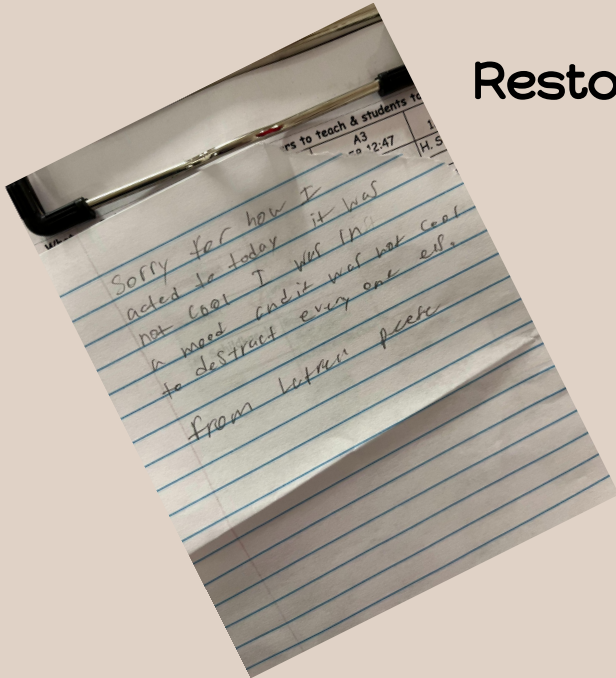 Resto
rs to teach & students to
A3
12:47
H. S
Sorry for how I
acted to today it was
not cool I was in
a mood and it was not cool
to destract every one els.
from